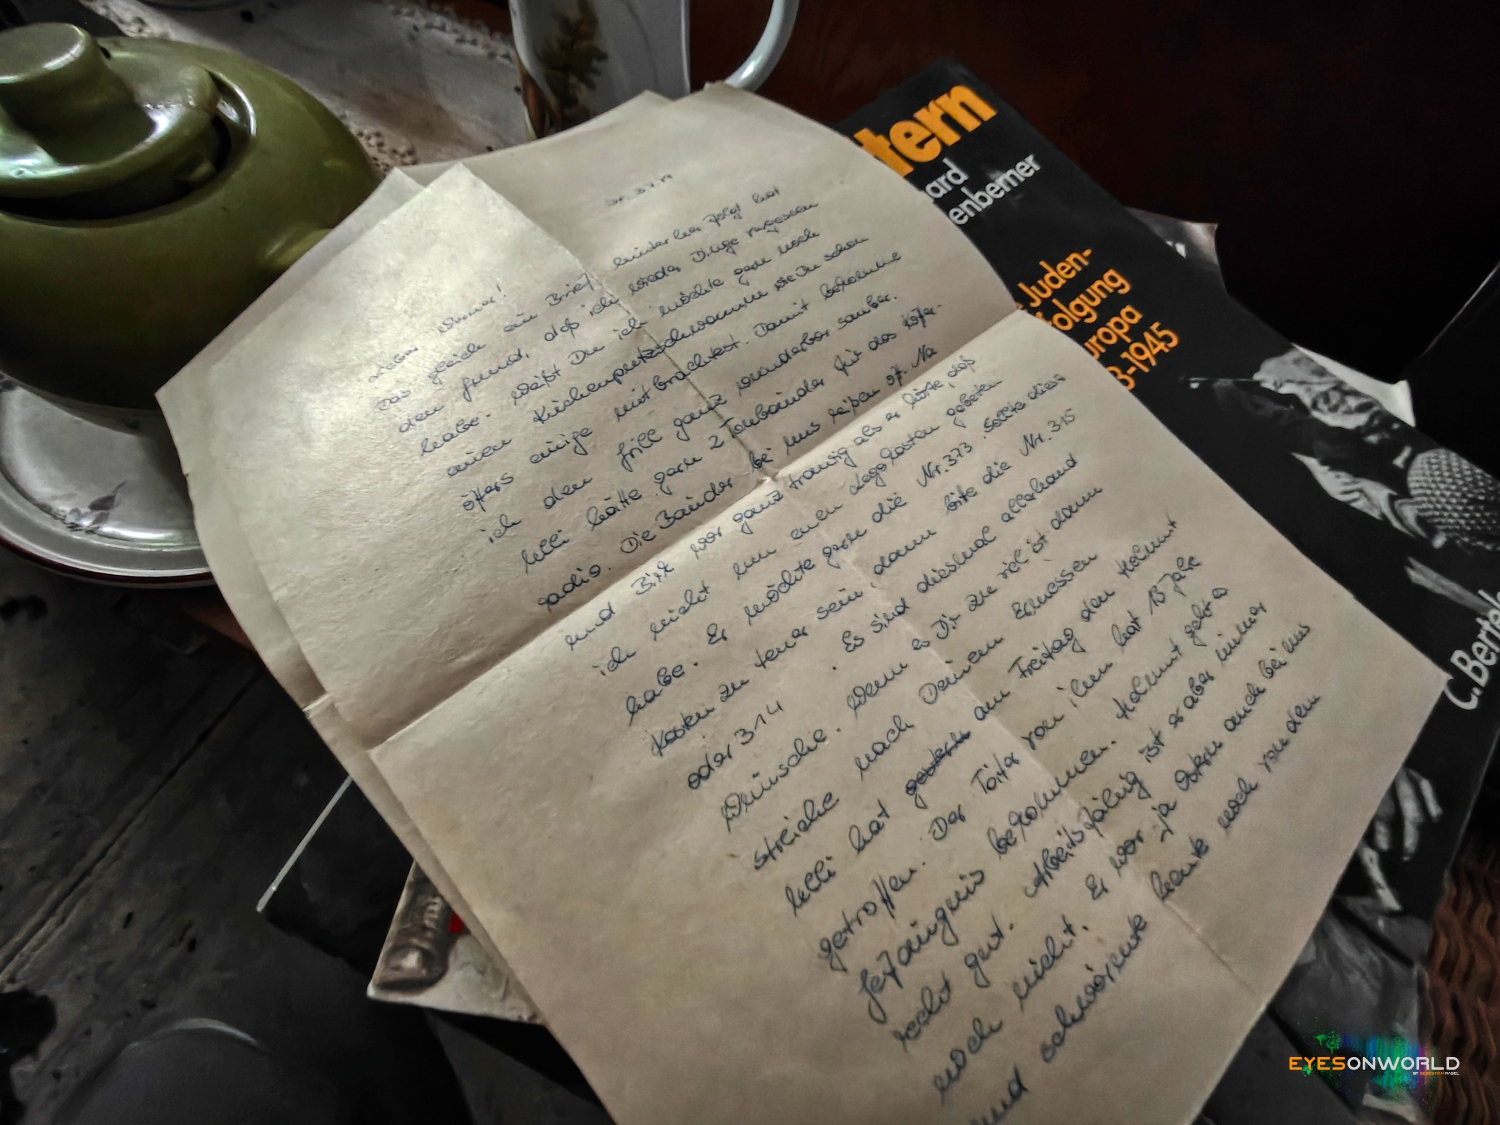 Lieber Werner!
Das gleich ein Brief hinterher folgt hat
den Grund, daß ich wieder Dinge vergessen
habe. Weißt Du ich möchte gern noch
einen Küchenputzschwamm wie Du schon
öfters einige mitbrachtest. Damit bekomme
ich den Grill ganz wunderbar sauber.
Lilli hätte gern 2 Tonbänder für das Koffer-
radio. Die Bänder bei uns leiern oft. Na
und war ganz traurig als er hörte, daß
ich nicht um einen Legokasten gebeten
habe. Er möchte gern die Nr. 373. Sollte dieser
Kasten zu teuer sein, dann bitte die Nr. 315
oder 314. Es sind diesmal allerhand
Wünsche. Wenn es Dir zu viel ist dann
streiche nach Deinem Ermessen
Lilli hat gestern am Freitag den Helmut
getroffen. Der Täter von ihm hat 13 Jahre
Gefängnis bekommen. Helmut geht es
recht gut. Arbeitsfähig ist er aber immer
noch nicht. Er war ja Ostern auch bei uns
und schwärmte heute noch von dem
tern
ard
enberner
Juden-
folgung
uropa
3-1945
C. Bertel
EYESONWORLD